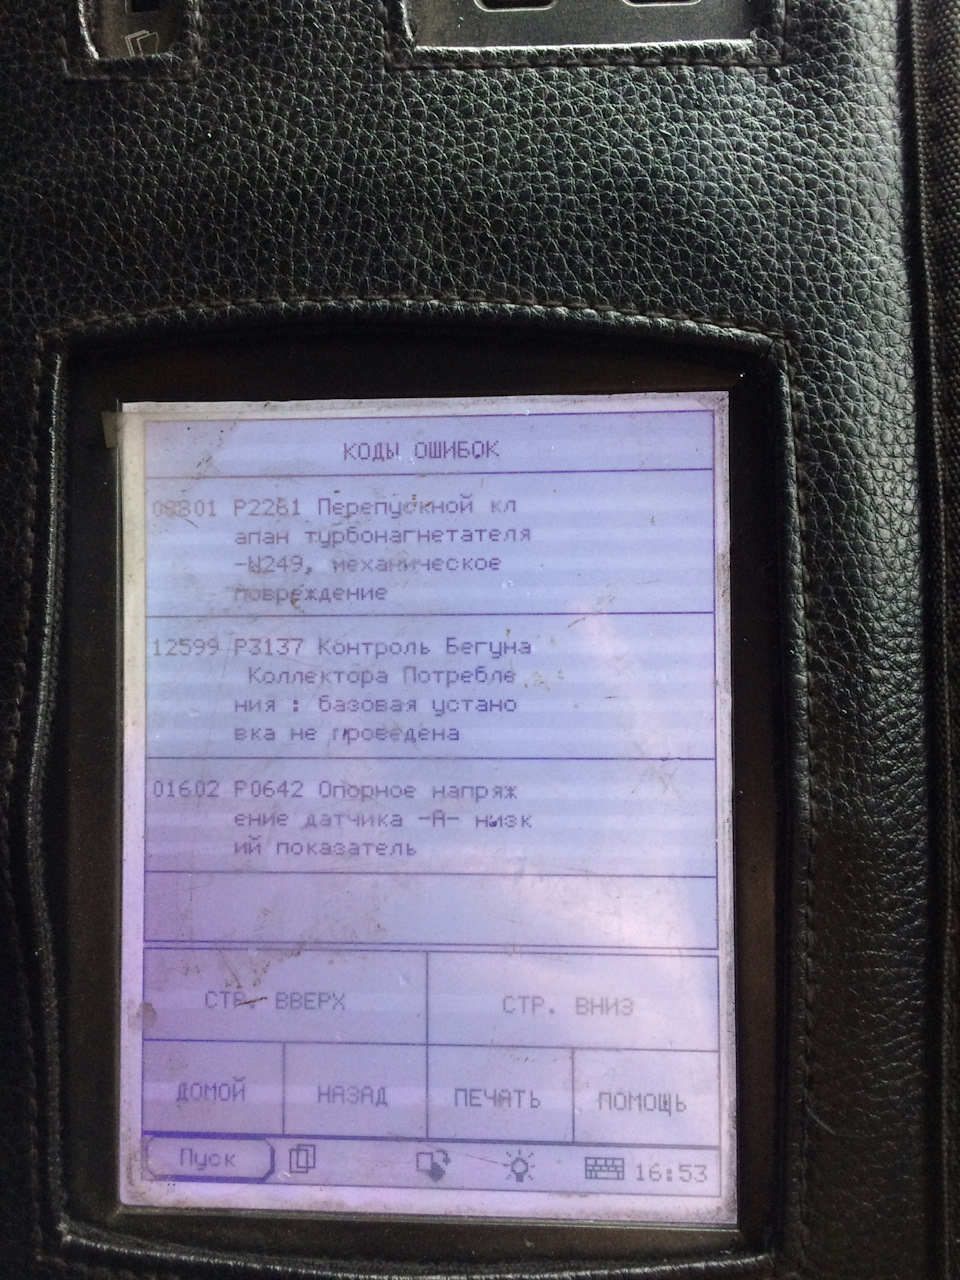 КОДЫ ОШИБОК
08801 P2261 Перепускной кл
апан турбонагнетателя
-N249, механическое
повреждение
12599 P3137 Контроль Бегуна
Коллектора Потребле
ния : базовая устано
вка не проведена
01602 P0642 Опорное напряж
ение датчика -A- низк
ий показатель
СТР. ВВЕРХ
СТР. ВНИЗ
ДОМОЙ
НАЗАД
ПЕЧАТЬ
ПОМОЩЬ
Пуск
16:53